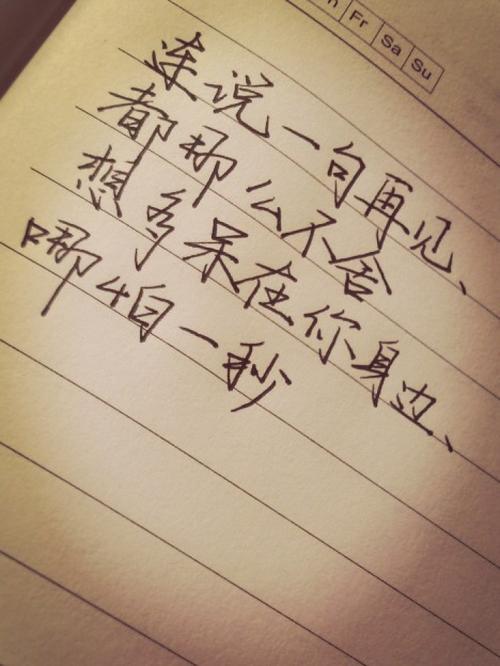 n Fr Sa Su
连说一句再见、
都那么不舍
想多呆在你身边、
哪怕一秒